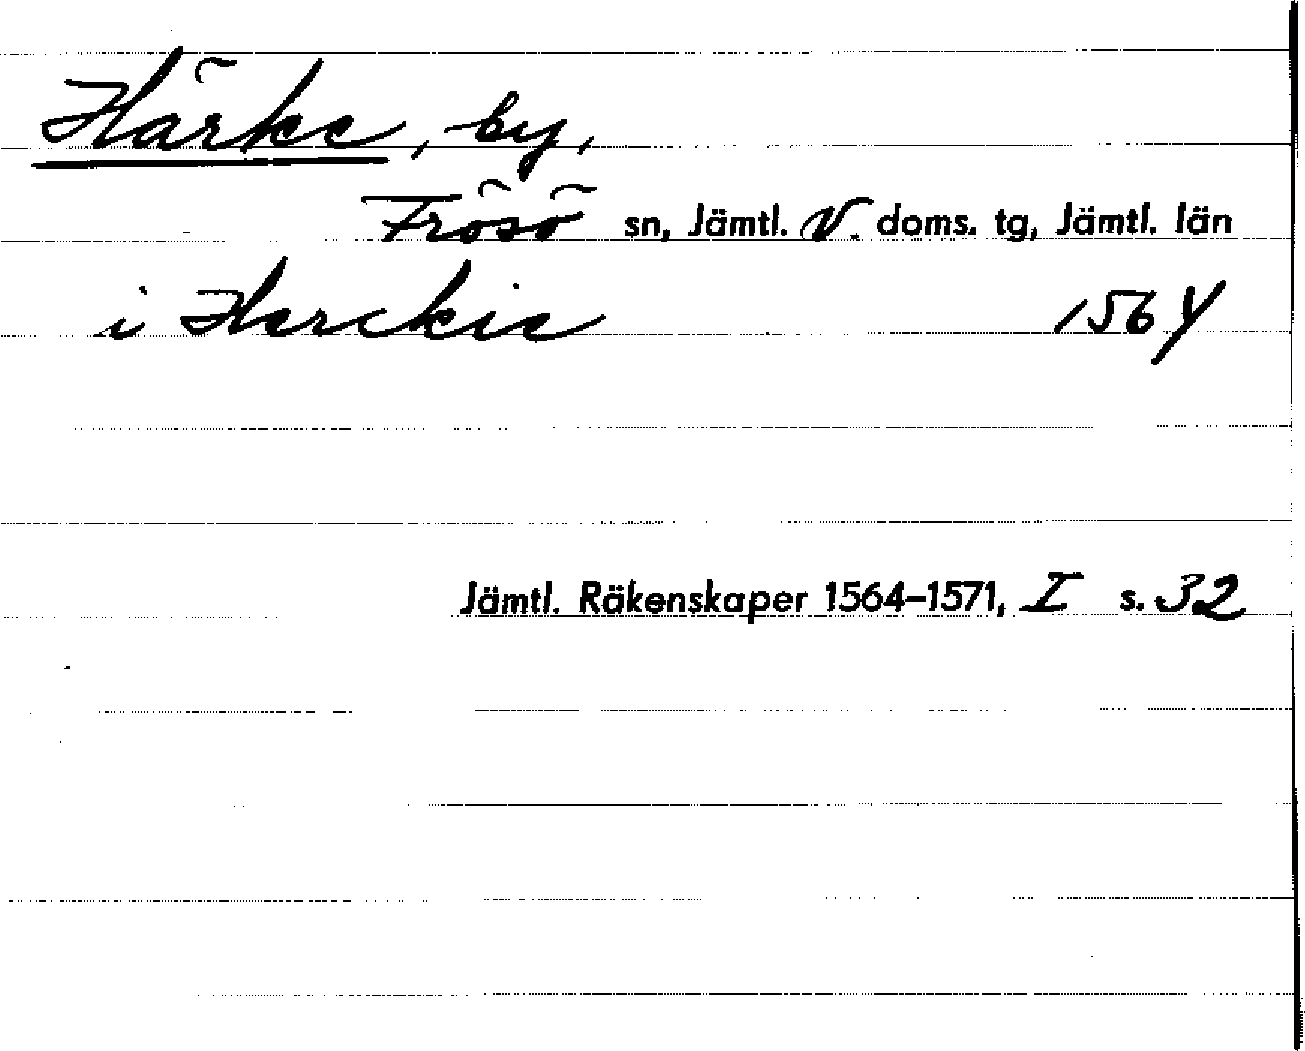 Härke, by,
Frösö sn, Jämtl. V. doms. tg, Jämtl. län
i Herckie 1564
Jämtl. Räkenskaper 1564-1571, I s. 32